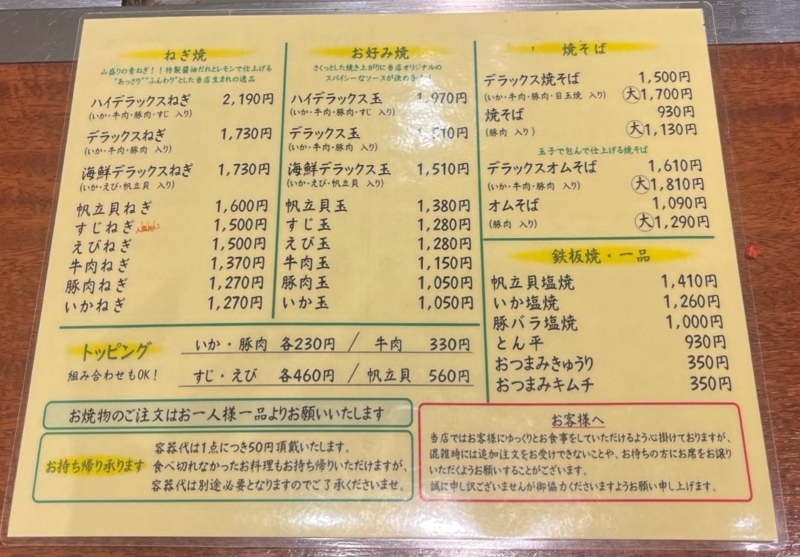 ねぎ焼
山盛りの青ねぎ！！特製醤油だれとレモンで仕上げる
"あっさり""ふんわり"とした当店生まれの逸品
ハイデラックスねぎ 2,190円
(いか・牛肉・豚肉・すじ 入り)
デラックスねぎ 1,730円
(いか・牛肉・豚肉 入り)
海鮮デラックスねぎ 1,730円
(いか・えび・帆立貝 入り)
帆立貝ねぎ 1,600円
すじねぎ 1,500円
えびねぎ 1,500円
牛肉ねぎ 1,370円
豚肉ねぎ 1,270円
いかねぎ 1,270円
お好み焼
さくっとした焼き上がりに当店オリジナルの
スパイシーなソースが決め
ハイデラックス玉 1,970円
(いか・牛肉・豚肉・すじ 入り)
デラックス玉 510円
(いか・牛肉・豚肉 入り)
海鮮デラックス玉 1,510円
(いか・えび・帆立貝 入り)
帆立貝玉 1,380円
すじ玉 1,280円
えび玉 1,280円
牛肉玉 1,150円
豚肉玉 1,050円
いか玉 1,050円
焼そば
デラックス焼そば 1,500円
(いか・牛肉・豚肉・目玉焼 入り) 大1,700円
焼そば 930円
(豚肉 入り) 大1,130円
玉子で包んで仕上げる焼そば
デラックスオムそば 1,610円
(いか・牛肉・豚肉 入り) 大1,810円
オムそば 1,090円
(豚肉 入り) 大1,290円
鉄板焼・一品
帆立貝塩焼 1,410円
いか塩焼 1,260円
豚バラ塩焼 1,000円
とん平 930円
おつまみきゅうり 350円
おつまみキムチ 350円
トッピング
組み合わせもOK！
いか・豚肉 各230円 / 牛肉 330円
すじ・えび 各460円 / 帆立貝 560円
お焼物のご注文はお一人様一品よりお願いいたします
お持ち帰り承ります
容器代は1点につき50円頂戴いたします。
食べ切れなかったお料理もお持ち帰りいただけますが、
容器代は別途必要となりますのでご了承くださいませ。
お客様へ
当店ではお客様にゆっくりとお食事をしていただけるよう心掛けておりますが、
混雑時には追加注文をお受けできないことや、お待ちの方にお席をお譲り
いただくようお願いすることがございます。
誠に申し訳ございませんが御協力くださいますようお願い申し上げます。